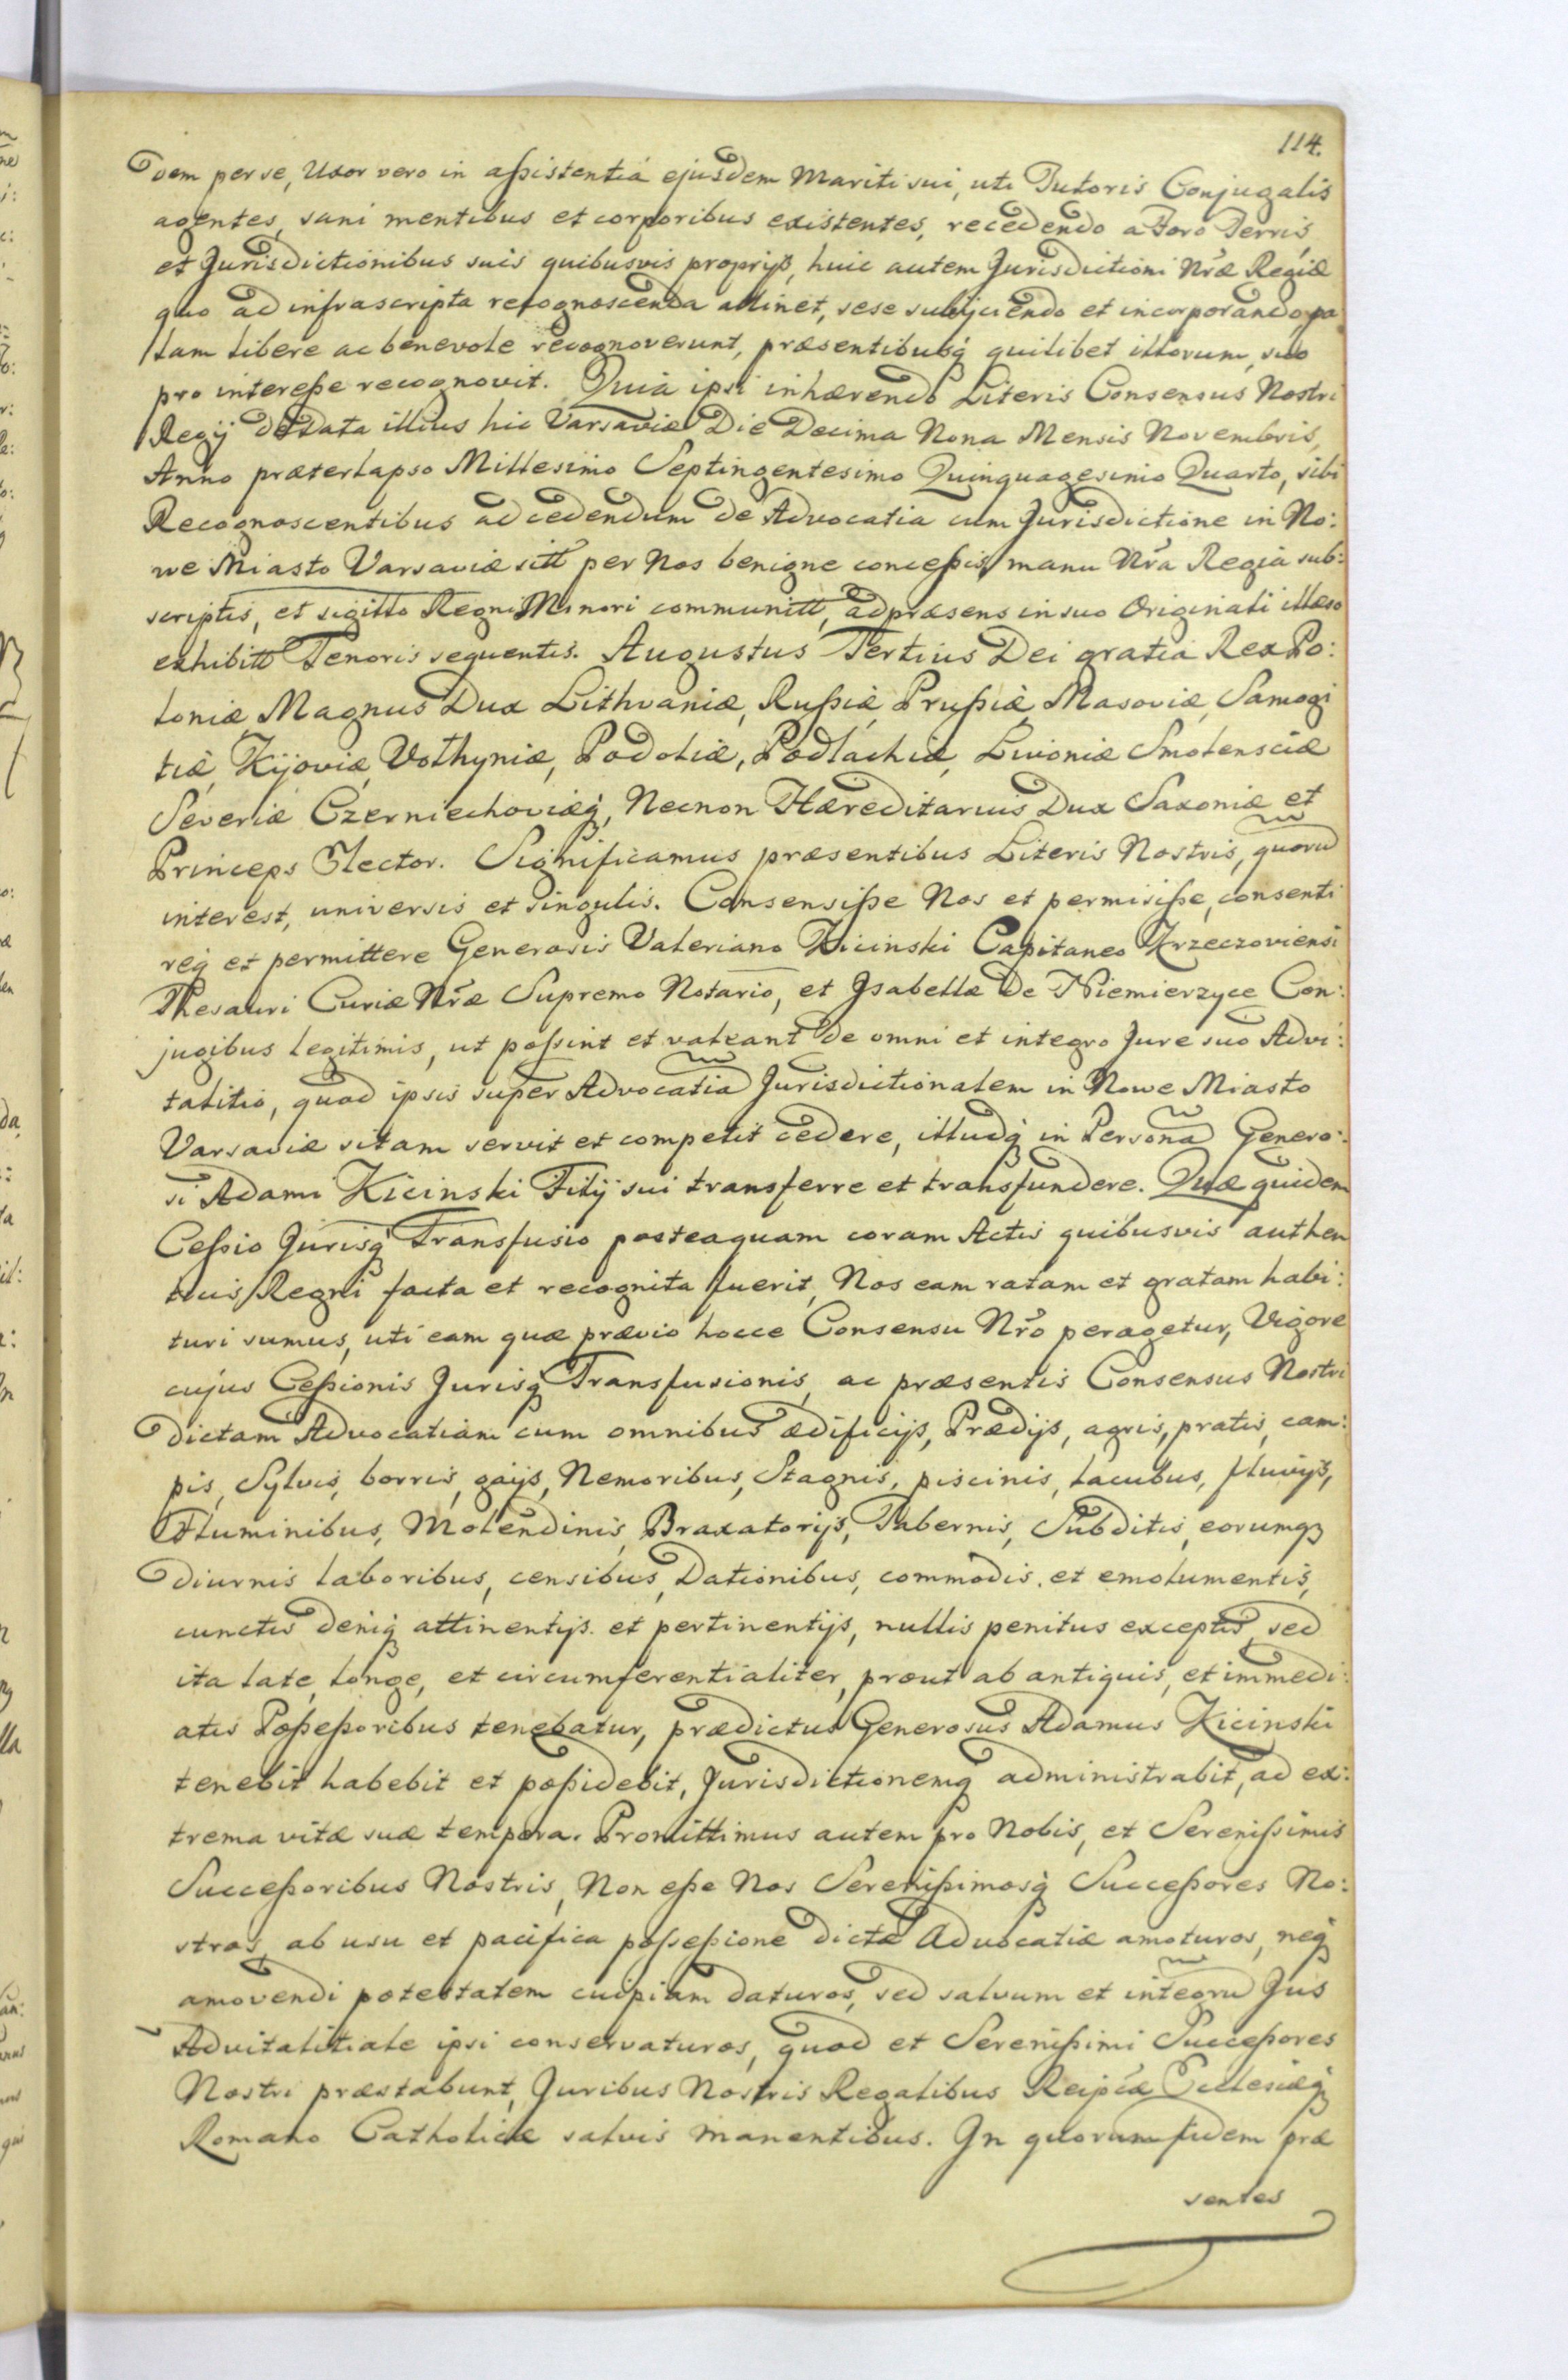 114.
dem per se, Uxor vero in assistentiá ejusdem Mariti sui, uti Tutoris Conjugalis
agentes, sani mentibus et corporibus existentes, recedendo a Foro Terris,
et Jurisdictionibus suis quibusvis proprijs, huic autem Jurisdictioni Nr̃æ Regiæ
quo ad infrascripta recognoscenda attinet, sese subijciendo et incorporando, pa
lam libere ac benevole recognoverunt, præsentibusq́ quilibet illorum, suo
pro interesse recognovit. Quia ipsi inhærendo Literis Consensus Nostri
Regij de Data illius hic Varsaviæ Die Decima Nona Mensis Novembris,
Anno præterlapso Millesimo Septingentesimo Quinquagesimo Quarto, sibi
Recognoscentibus ad cedendum de Advocatia cum Jurisdictione in No:
we Miasto Varsaviæ sitt per Nos benigne concessis, manu Nr̃a Regia sub:
scriptis, et sigillo Regni Minori communitt, ad præsens in suo Originali illæso
exhibitt Tenoris sequentis. Augustus Tertius Dei gratia Rex Po:
loniæ, Magnus Dux Lithvaniæ, Russiæ, Prussiæ, Masoviæ, Samogi
tiæ, Kijoviæ, Volhyniæ, Podoliæ, Podlachiæ, Livoniæ Smolensciæ
Severiæ Czerniechoviæq́, Necnon Hæreditarius Dux Saxoniæ et
Princeps Elector. Significamus præsentibus Literis Nostris, quorũ
interest, universis et singulis. Consensisse Nos et permisisse, consenti
req́ et permittere Generosis Valeriano Kicinski Capitaneo Krzeczoviensi
Thesauri Curiæ Nr̃æ Supremo Notario, et Isabellæ de Niemierzyce Con:
jugibus legitimis, ut possint et valeant de omni et integro Jure suo Advi:
talitio, quod ipsis super Advocatiã Jurisdictionalem in Nowe Miasto
Varsaviæ sitam servit et competit cedere, illudq́ in Personã Genero:
si Adami Kicinski Filij sui transferre et transfundere. Quæ quidem
Cessio Jurisq́ Transfusio posteaquam coram Actis quibusvis authen
ticis Regni facta et recognita fuerit, Nos eam ratam et gratam habi:
turi sumus, uti eam quæ prævio hocce Consensu Nr̃o peragetur, Vigore
cujus Cessionis Jurisq́ Transfusionis, ac præsentis Consensus Nostri
dictam Advocatiam cum omnibus ædificijs, Prædijs, agris, pratis, cam:
pis, Sylvis, borris, gaijs, Nemoribus, Stagnis, piscinis, lacubus, fluvijs,
Fluminibus, Molendinis, Braxatorijs, Tabernis, Subditis, eorumq
diurnis laboribus, censibus, Dationibus, commodis. et emolumentis,
cunctis deniq́ attinentijs. et pertinentijs, nullis penitus exceptis, sed
ita late, longe, et circumferentialiter, prout ab antiquis, et immedi:
atis Possessoribus tenebatur, prædictus Generosus Adamus Kicinski
tenebit habebit et possidebit, Jurisdictionemq́ administrabit, ad ex:
trema vitæ suæ tempora. Promittimus autem pro Nobis, et Serenissimis
Successoribus Nostris, Non esse Nos Serenissimosq́ Successores No:
stros, ab usu et pacifica possessione dictæ Advocatiæ amoturos, neq́
amovendi potestatem cuipiam daturos, sed salvum et integrũ Jus
Advitalitiale ipsi conservaturos, quod et Serenissimi Successores
Nostri præstabunt, Juribus Nostris Regalibus Reipcæ Ecclesiæq́
Romano Catholicæ salvis manentibus. In quorum fidem præ
sentes